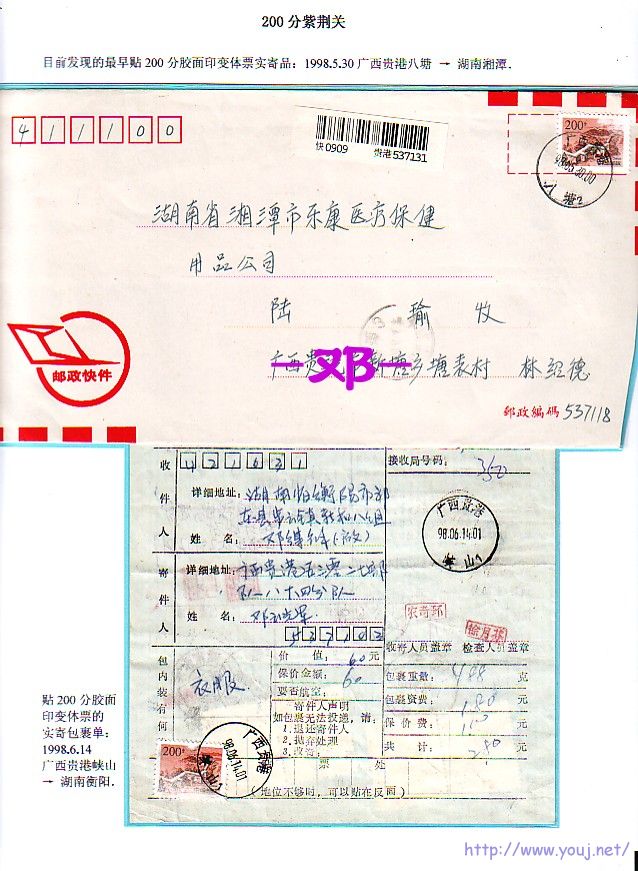 200分紫荆关
目前发现的最早贴200分胶面印变体票实寄品：1998.5.30广西贵港八塘 → 湖南湘潭.
411100
快0909 贵港537131
200分
广西贵港
98.05.30.00
八塘2
湖南省湘潭市乐康医疗保健
用品公司
陆 瑜 收
邓
广西贵 塘袁村 林绍德
邮政快件
邮政编码 537118
收件人
421621
接收局号码： 350
详细地址：湖南省衡阳市
八组
姓名：邓
广西贵港
98.06.14.01
山1
寄件人
详细地址：广西贵港
八十四分队
姓名：邓
537102
农奇郁
收寄人员盖章 检查人员盖章
包内装有何
衣服
价 值： 60元
保价金额： 60
要否航空：
寄件人声明
如包裹无法投递，请：
1.退还寄件人
2.抛弃处理
3.改寄：
包裹重量： 克
包裹资费：
保 价 费：
共 计：
票 处
200分
广西贵港
98.06.14.01
山1
（地位不够时，可以贴在反面）
贴200分胶面
印变体票的
实寄包裹单：
1998.6.14
广西贵港峡山
→ 湖南衡阳.
http://www.youj.net/